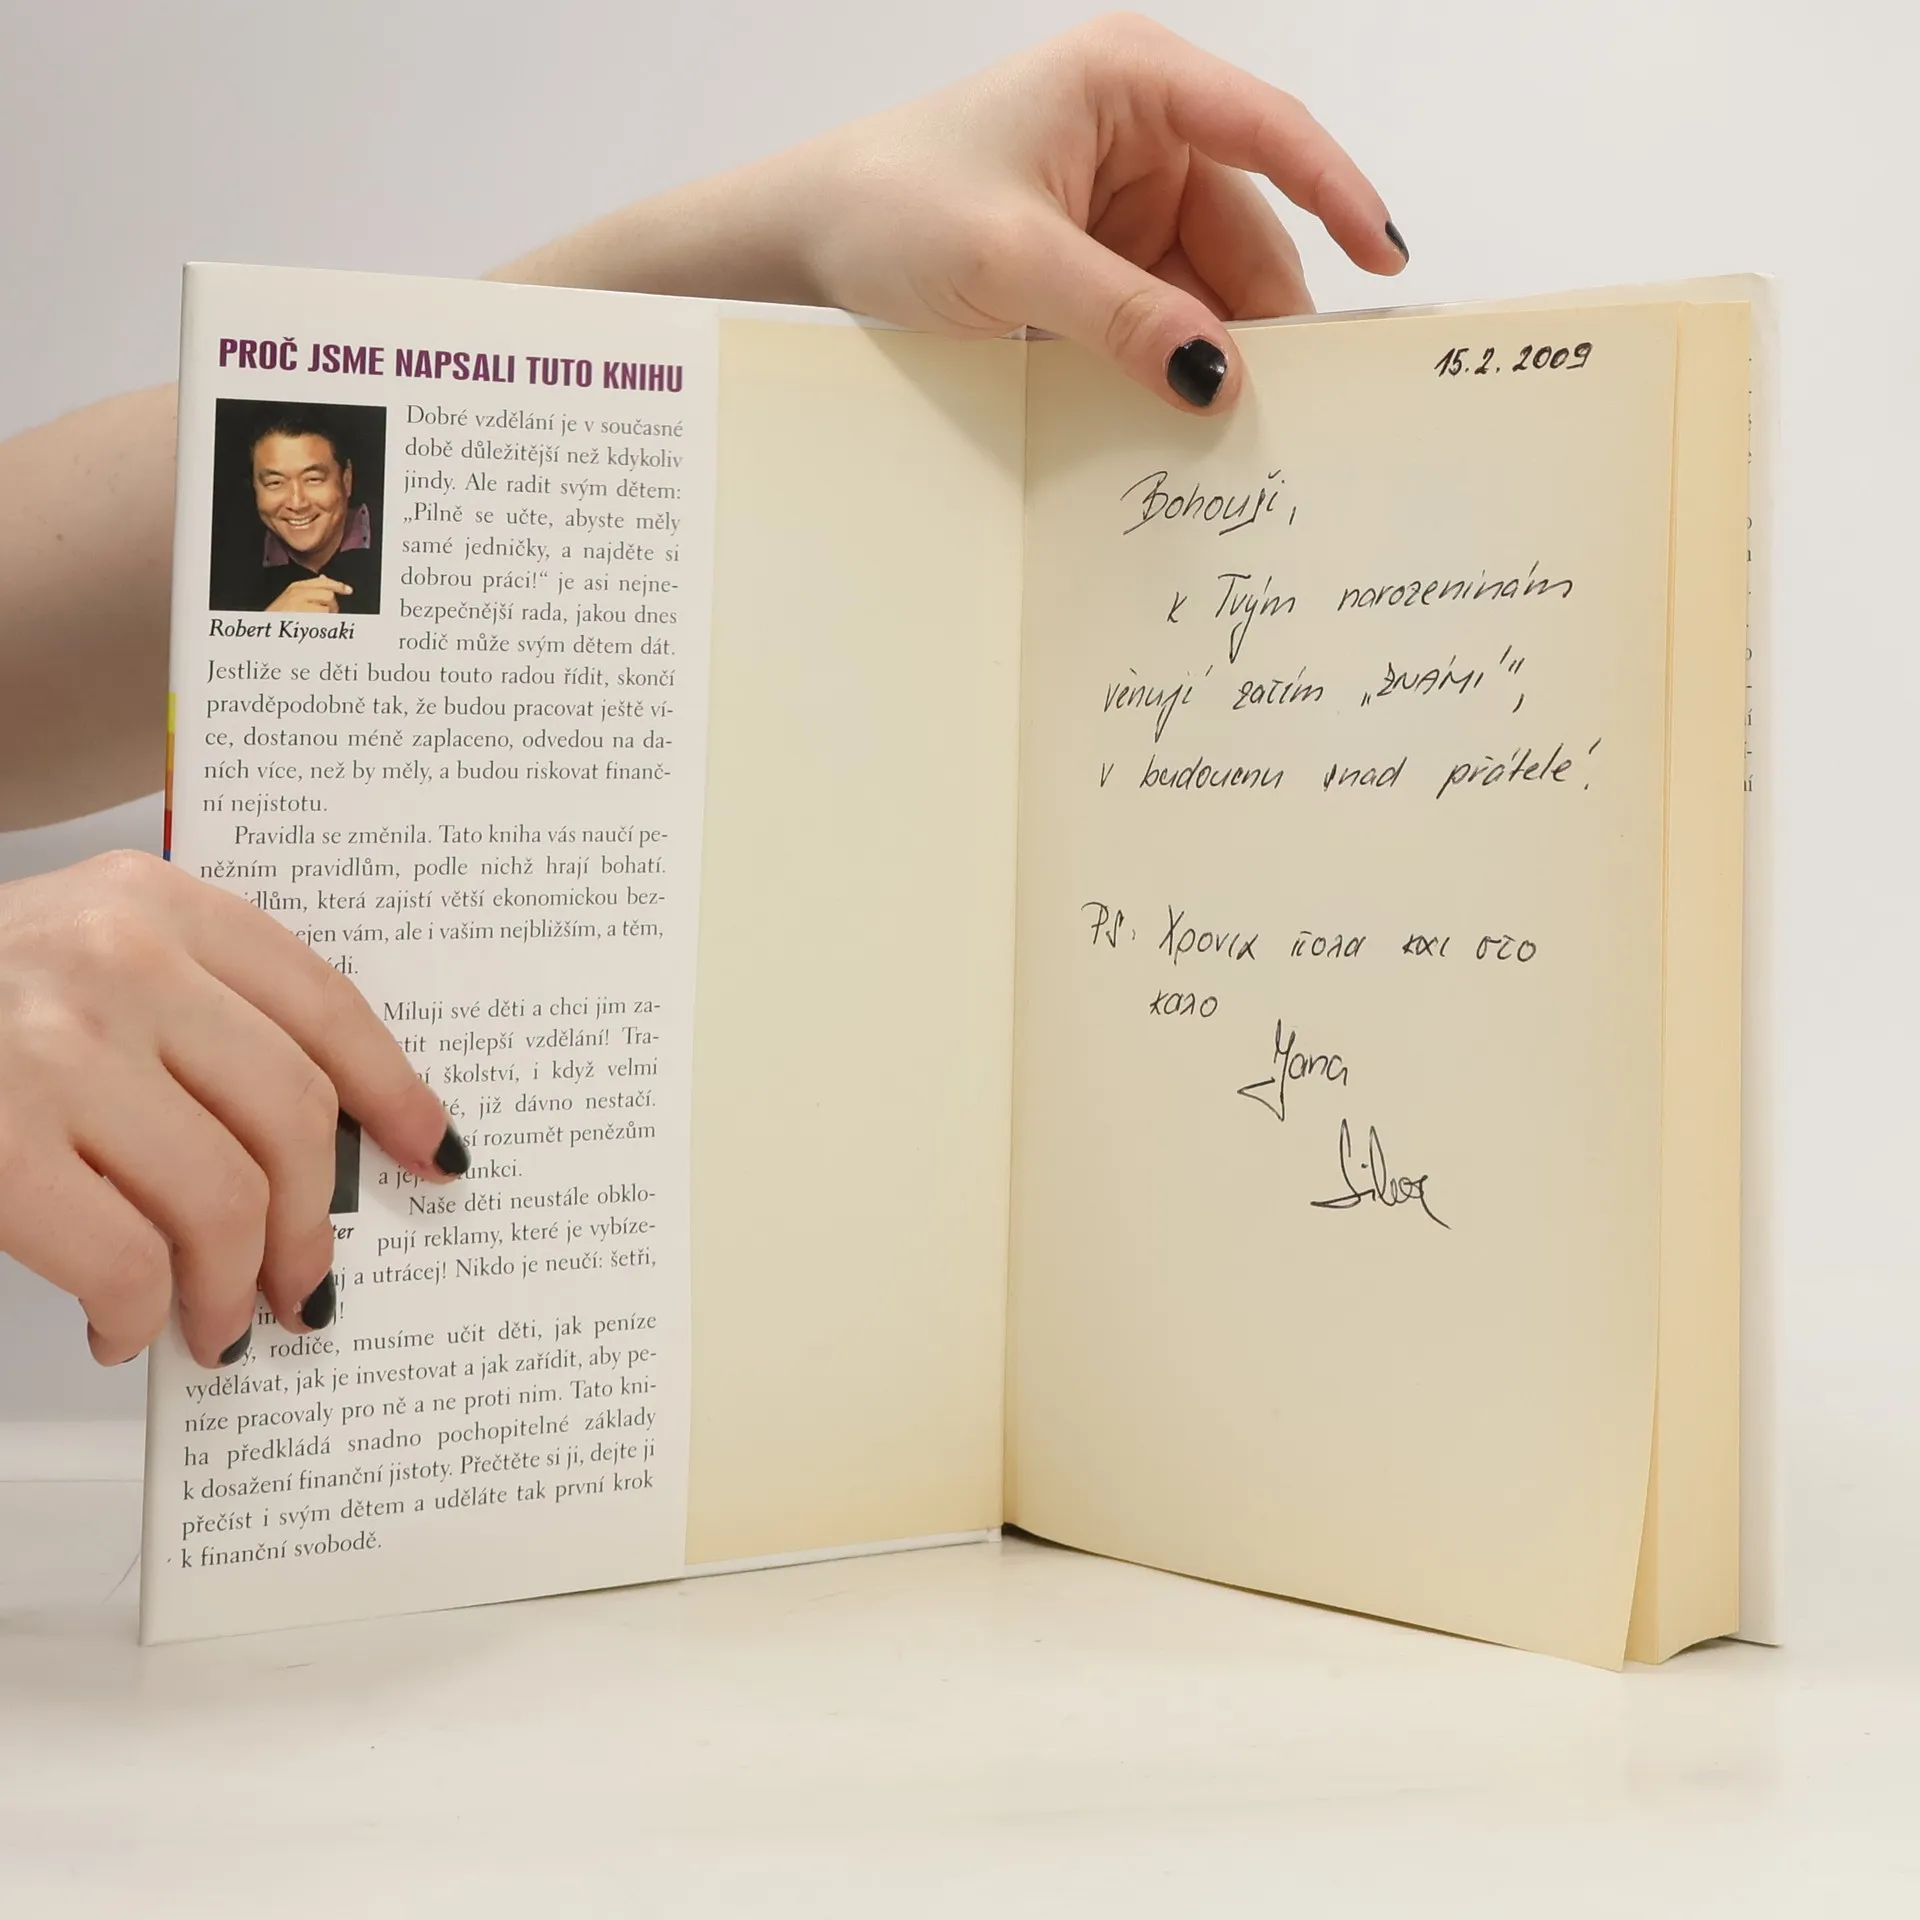 PROČ JSME NAPSALI TUTO KNIHU
Dobré vzdělání je v současné
době důležitější než kdykoliv
jindy. Ale radit svým dětem:
„Pilně se učte, abyste měly
samé jedničky, a najděte si
dobrou práci!“ je asi nejne-
bezpečnější rada, jakou dnes
rodič může svým dětem dát.
Robert Kiyosaki
Jestliže se děti budou touto radou řídit, skončí
pravděpodobně tak, že budou pracovat ještě ví-
ce, dostanou méně zaplaceno, odvedou na da-
ních více, než by měly, a budou riskovat finanč-
ní nejistotu.
Pravidla se změnila. Tato kniha vás naučí pe-
něžním pravidlům, podle nichž hrají bohatí.
idlům, která zajistí větší ekonomickou bez-
ejen vám, ale i vašim nejbližším, a těm,
ídi.
Miluji své děti a chci jim za-
stit nejlepší vzdělání! Tra-
ní školství, i když velmi
té, již dávno nestačí.
sí rozumět penězům
a je unkci.
ter
Naše děti neustále obklo-
pují reklamy, které je vybíze-
uj a utrácej! Nikdo je neučí: šetři,
in j!
y, rodiče, musíme učit děti, jak peníze
vydělávat, jak je investovat a jak zařídit, aby pe-
níze pracovaly pro ně a ne proti nim. Tato kni-
ha předkládá snadno pochopitelné základy
k dosažení finanční jistoty. Přečtěte si ji, dejte ji
přečíst i svým dětem a uděláte tak první krok
k finanční svobodě.
15.2.2009
Bohouši,
k Tvým narozeninám
věnují zatím „ZNÁMÍ“,
v budoucnu snad přátelé!
PS: Χρονια πολα και στο
καλο
Jana
Libor